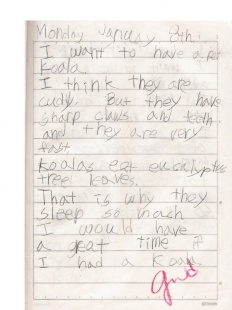 Monday January 8th.
I want to have a pet
koala.
I think they are
cudy. But they have
sharp claws and teeth.
and they are very
fast.
koalas eat eucalyptus
tree leaves.
That is why they
sleep so much
I would have
a great time if
I had a koala